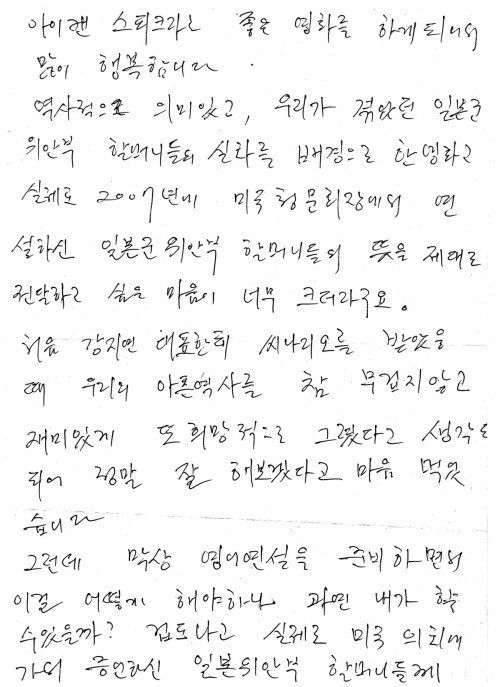 아이캔 스피크라는 좋은 영화를 하게되어서
많이 행복합니다.
역사적으로 의미있고, 우리가 겪었던 일본군
위안부 할머니들의 실화를 배경으로 한영화라
실제로 2007년에 미국청문회장에서 연
설하신 일본군위안부 할머니들의 뜻을 제대로
전달하고 싶은 마음이 너무 크더라구요.
처음 강지연 대표한테 씨나리오를 받았을
때 우리의 아픈역사를 참 무겁지않고
재미있게 또 희망적으로 그렸다고 생각
되어 정말 잘 해보겠다고 마음 먹었
습니다
그런데 막상 영어연설을 준비하면서
이걸 어떻게 해야하나 과연 내가 할
수있을까? 겁도나고 실제로 미국 의회에
가서 증언하신 일본위안부 할머니들께